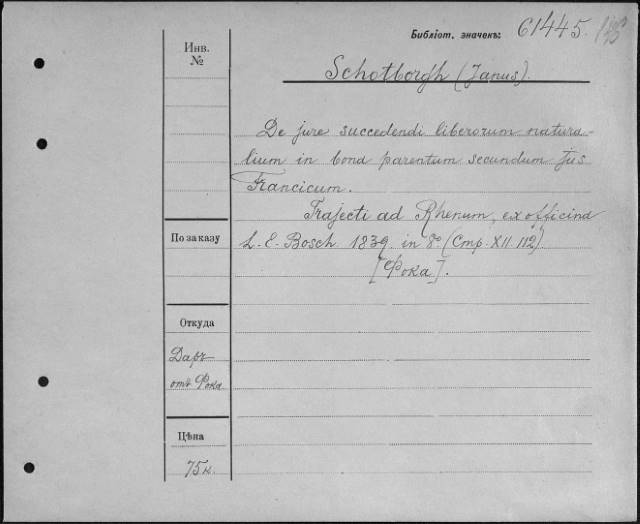 Библіот. значекъ: 61445.
Инв.
№
Schotborgh (Janus).
De jure succedendi liberorum natura-
lium in bona parentum secundum jus
Francicum.
Trajecti ad Rhenum, ex officina
L. E. Bosch 1839 in 8º (Стр. XII. 112)
[Фока].
По заказу
Откуда
Даръ
отъ Фока
Цѣна
75 к.